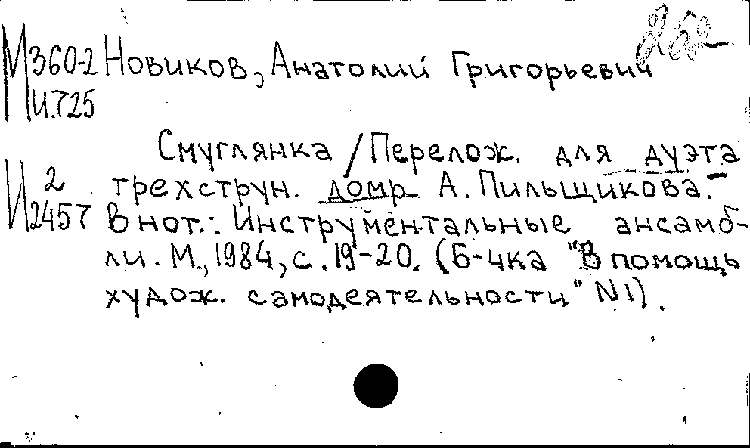 М 360-2 Новиков, Анатолий Григорьевич
И.725
Смуглянка / Перелож. для дуэта
И 2 трехструн. домр А. Пильщикова. -
2457 В нот.: Инструментальные ансамб-
ли. М., 1984, с. 19-20. (Б-чка "В помощь
худож. самодеятельности" №1).